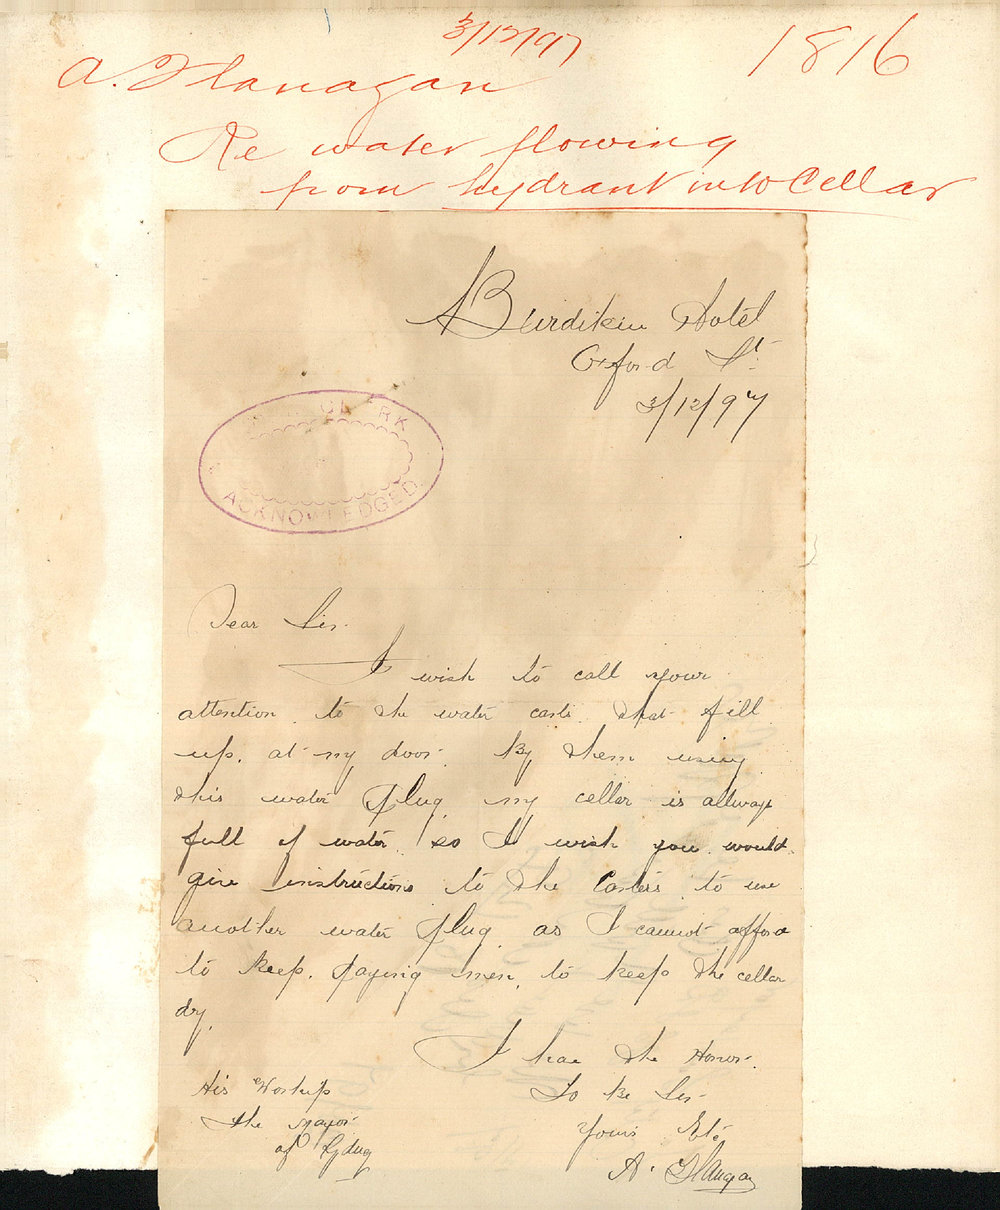 3/12/97
1816
A. Flanagan
Re water flowing
from hydrant into Cellar
Burdikin Hotel
Oxford St.
3/12/97
CLERK
ACKNOWLEDGED
Dear Sir.
I wish to call your
attention to the water carts that fill
up. at my door. By them using
this water plug my cellar is allways
full of water. so I wish you would
give instructions to the Carters to use
another water plug as I cannot afford
to keep. paying men, to keep the cellar
dry.
I have the Honor.
To be Sir
Yours Etc
A. Flanagan
His Worship
the Mayor
of Sydney